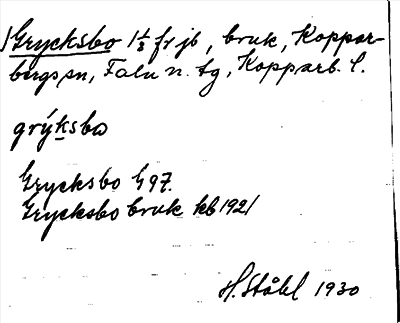 Grycksbo 1 1/3 fr jb, bruk, Koppar-
bergs sn, Falu n. tg, Kopparb. l.
grýksbω
Grycksbo G 97.
Grycksbo bruk kb 1921
H. Ståhl 1930